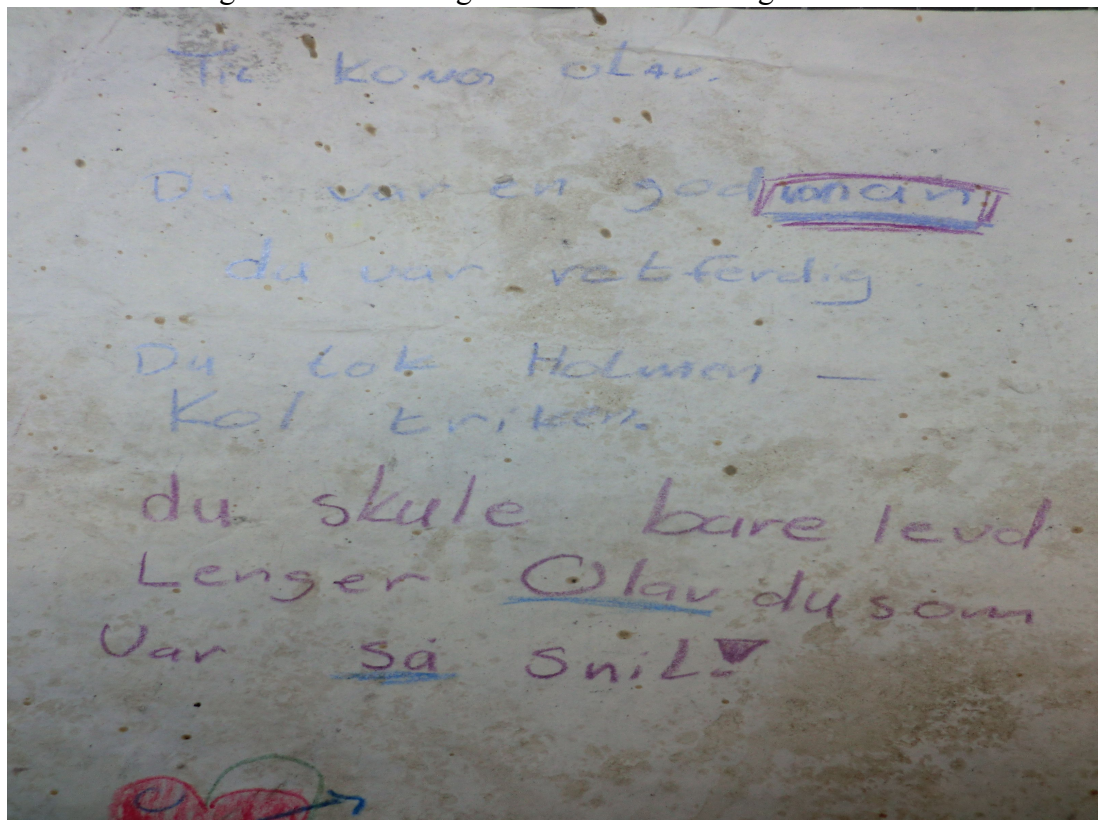 Til Kong Olav.
Du var en god mann
du var retferdig
Du tok Holmen —
Kol triken.
du skule bare levd
Lenger Olav du som
Var så snil!